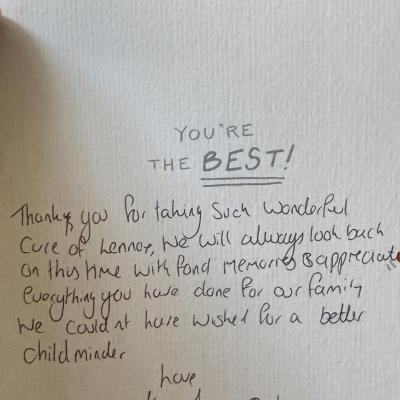 YOU'RE
THE BEST!
Thank you for taking such wonderful
Care of Lennox, We will always look back
on this time with fond memories & appreciate
everything you have done for our family
We couldnt have wished for a better
childminder
have